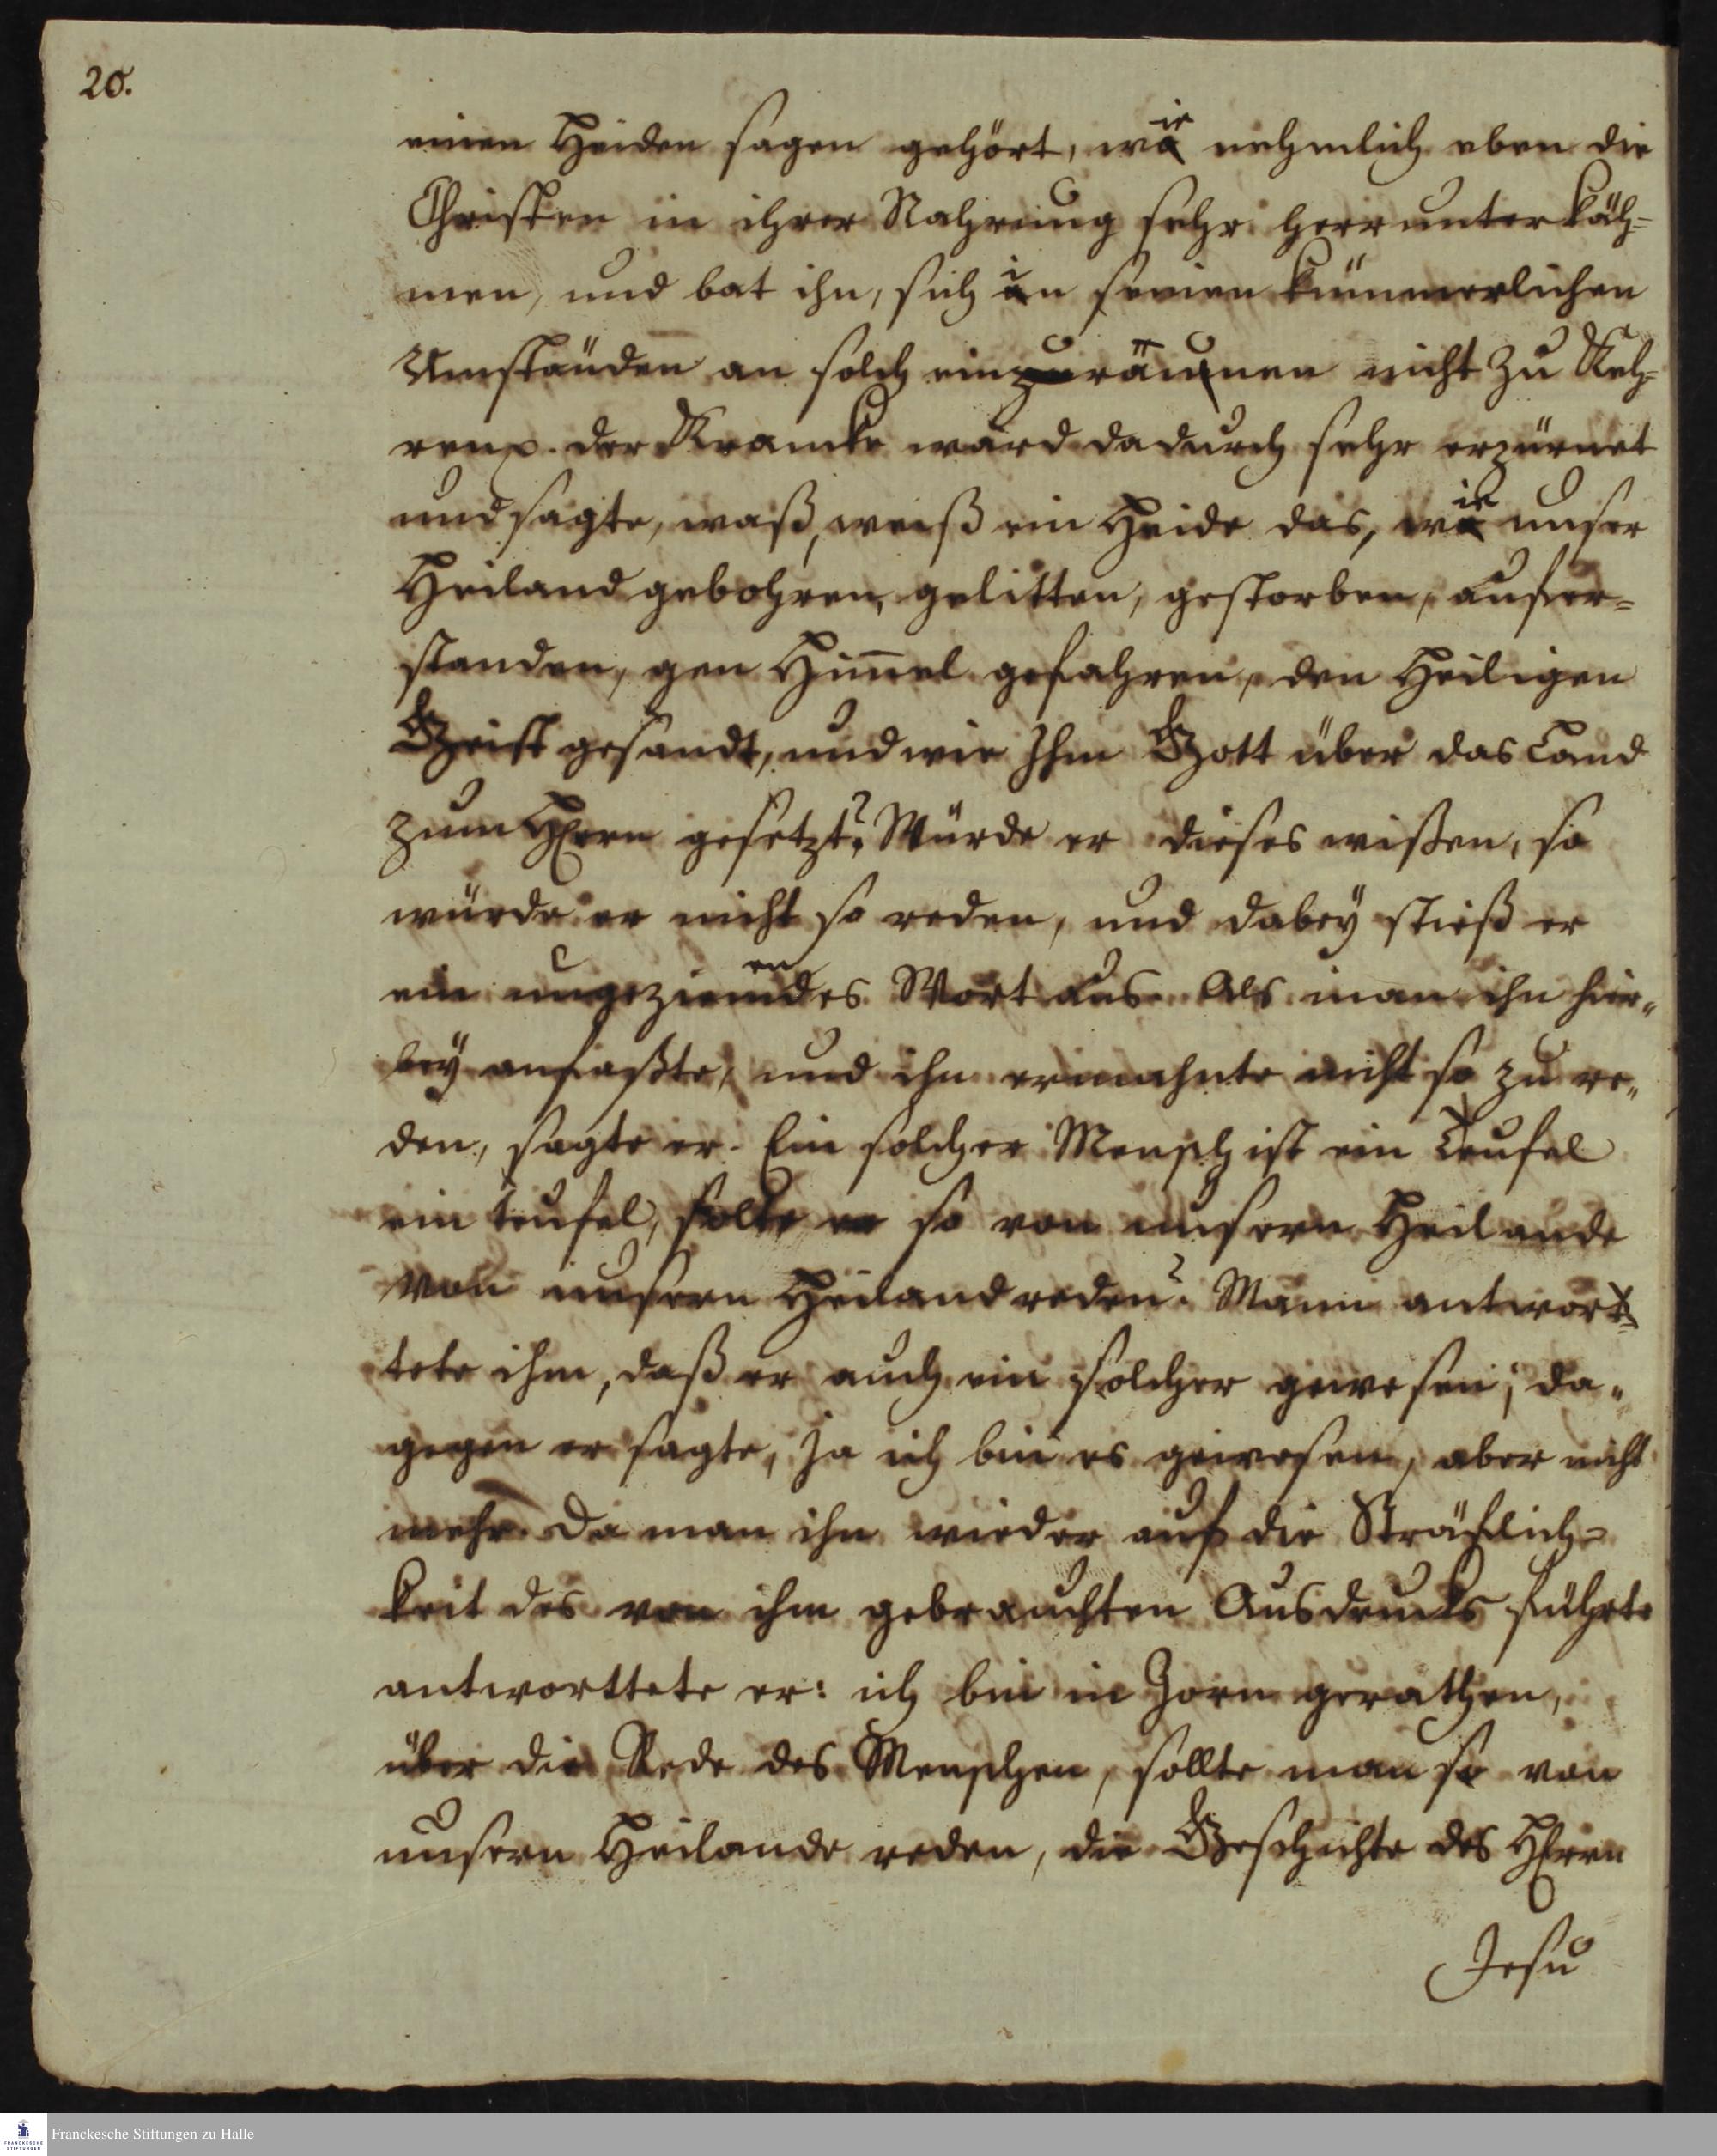 20.
einen Heiden sagen gehört, wie nehmlich eben die
Christen in ihrer Nahrung sehr herrunter käh=
men, und bat ihn, sich in seinen kümmerlichen
Umständen an solch nicht zu Keh=
ren. der Krancke ward dadurch sehr erzürnet
und sagte, waß, weiß ein Heide das, wie unser
Heiland gebohren, gelitten, gestorben, aufer=
standen, gen Him̄el gefahren, den Heiligen
Geist gesandt, und wie Ihm Gott über das Land
zum HErrn gesetzt? Würde er dieses wißen, so
würde er nicht so reden, und dabey stieß er
ein ungeziemendes Wort aus. Als man ihn hier„
bey anfaßte, und ihn ermahnte nicht so zu re„
den, sagte er. Ein solcher Mensch ist ein Teufel
ein teufel, solte er so von unsern Heilande
von unsern Heiland reden? Mann antwort=
tete ihm, daß er auch ein solcher gewesen; da„
gegen er sagte, Ja ich bin es gewesen, aber nicht
mehr. Da man ihn wieder auf die Sträflich=
keit des von ihm gebrauchten Ausdrucks führte
antworttete er: ich bin in Zorn gerathen,
über die Rede des Menschen, sollte man so von
unsern Heilande reden, die Geschichte des HErrn
Jesu
Franckesche Stiftungen zu Halle
FRANCKESCHE
STIFTUNGEN